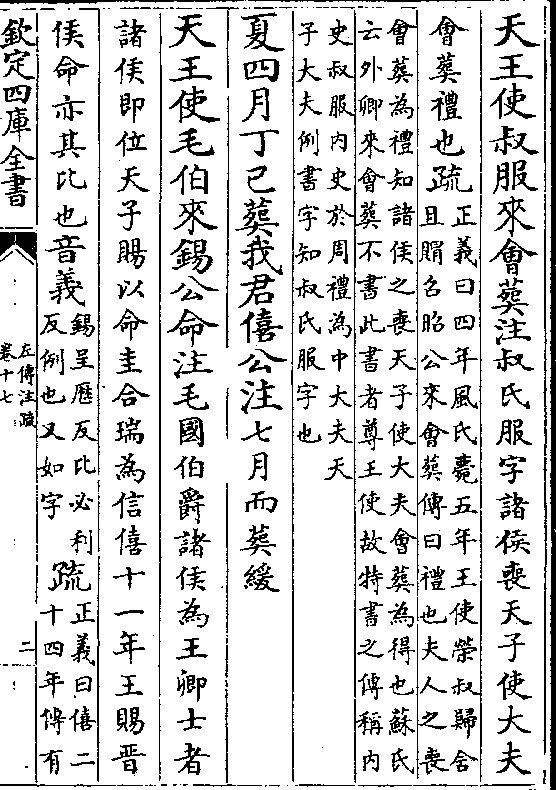 天王使叔服來會葬注叔氏服字諸侯喪天子使大夫
會葬禮也疏
正義曰四年風氏薨五年王使榮叔歸含
且賵召昭公來會葬傳曰禮也夫人之喪
會葬為禮知諸侯之喪天子使大夫會葬為得也蘇氏
云外卿來會葬不書此書者尊王使故特書之傳稱內
史叔服內史於周禮為中大夫天
子大夫例書字知叔氏服字也
夏四月丁巳葬我君僖公注七月而葬緩
天王使毛伯來錫公命注毛國伯爵諸侯為王卿士者
諸侯即位天子賜以命圭合瑞為信僖十一年王賜晉
侯命亦其比也音義
錫呈歷反比必利
反例也又如字
疏
正義曰僖二
十四年傳有
欽定四庫全書
左傳注疏
卷十七
二